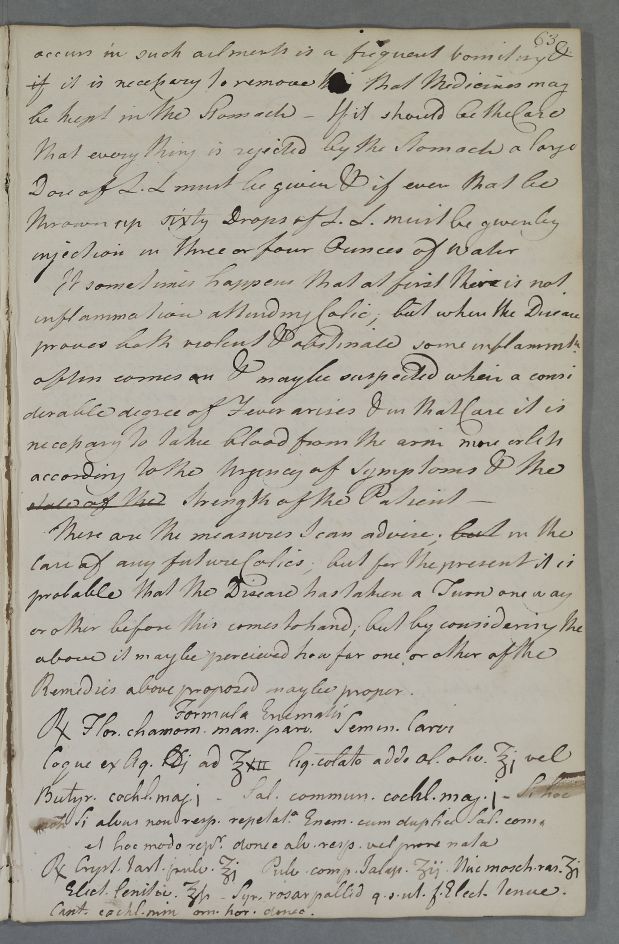 63
occurs in such ailments is a frequent vomiting &
if it is necessary to remove that Medicines may
be kept in the Stomach - If it should be the Case
that every thing is rejected by the Stomach a large
Dose of L. L must be given & if even that be
thrown up sixty Drops of L. L. must be given by
injection in three or four Ounces of Water
It sometimes happens that at first there is not
inflammation attending Colic; but when the Disease
proves both violent & obstinate some inflammtn.
often comes on & may be suspected when a consi
derable degree of Fever arises & in that Case it is
necessary to take blood from the arm more or less
according to the Urgency of Symptoms & the
state of the Strength of the Patient -
These are the measures I can advise, but in the
Case of any future Colics; but for the present it is
probable that the Disease has taken a Turn one way
or other before this comes to hand; but by considering the
above it may be perceived how far one or other of the
Remedies above proposed may be proper.
Formula Enematis
℞ Flor. chamom. man. parv. Semin. Carvi
Coque ex Aq. ℔j ad ℥XII liq. colato adde ol. oliv. ℥j vel
Butyr. cochl. maj. j - Sal. commun. cochl. maj. j - Si hoc
Si alvus non resp. repetat.r Enem. cum duplici Sal. com.
et hoc modo rept. donec alv. resp. vel pro re nata
℞ Cryst. Tart. pulv. ℥j Pulv. comp. Jalap. ʒij Nuc. mosch. ras. ʒj
Elect. lenitiv. ℥ſs - Syr. rosar pallid q. s. ut. f. Elect. tenue.
Capt. cochl. min om. hor. donec.